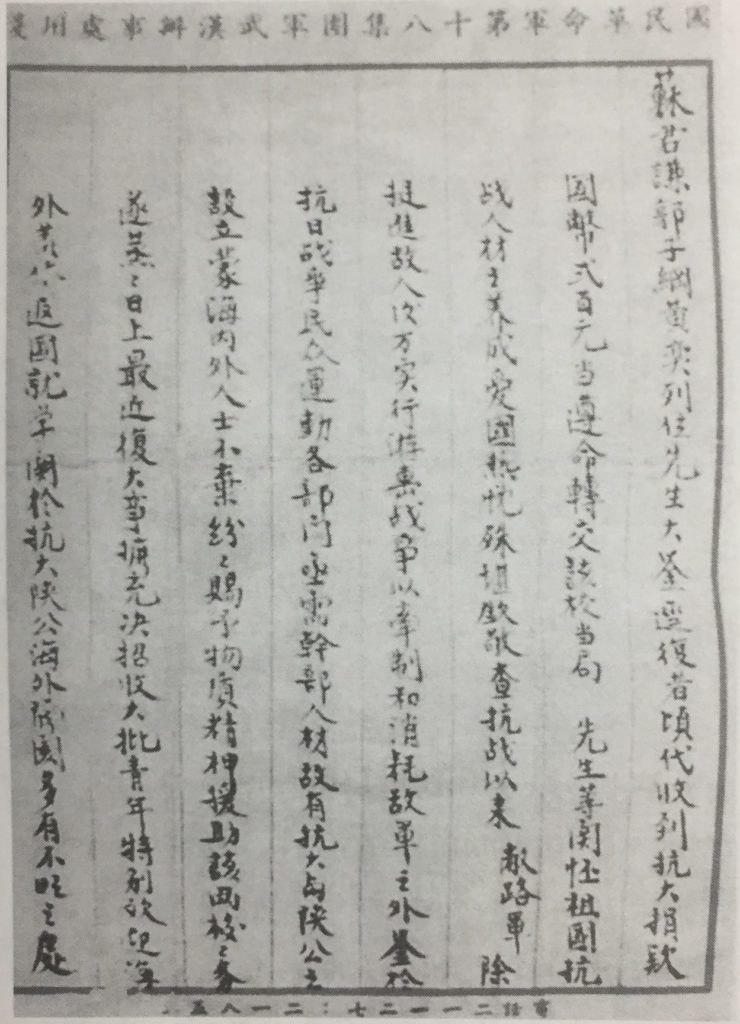 國民革命軍第十八集團軍武漢辦事處用箋
蘇君謙郭子綱黄奕列位先生大鑒逕復者頃代收到抗大捐款
國幣弍百元当遵命轉交該校当局 先生等関怀祖國抗
战人材之养成爱國熱忱殊堪欽敬查抗战以来 敝路軍 除
挺進敌人后方实行游击战争以牽制和消耗敌軍之外鉴於
抗日战争民众運動各部门亟需幹部人材故有抗大与陕公之
設立蒙海内外人士不棄紛々賜予物質精神援助該两校之务
遂蒸々日上最近復大事擴充决招收大批青年特别欢迎海
外青年返國就学関於抗大陕公海外多有不明之處
電話二一一二七：二一八五